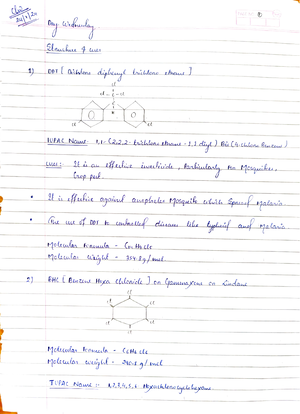 Day Wednesday
Structure & uses
1) DDT [ diphenyl trichloro ethane ]
Cl
Cl - C - Cl
Cl Cl
IUPAC Name: 1,1-(2,2,2-trichloro ethane-1,1 diyl) Bis (4-chloro Benzene)
Uses: It is an effective insecticide, Particularly for Mosquitoes,
Crop pest.
• It is effective against anopheles Mosquito which Spread Malaria
• The use of DDT to controlled diseases like typhoid and Malaria.
Molecular Formula - C14H9Cl5
Molecular Weight = 354.5 g/mol
2) BHC [ Benzene Hexa Chloride ] or Gammaxene or Lindane
Cl
Cl Cl
Cl Cl
Cl
Molecular Formula - C6H6Cl6
Molecular weight = g/mol
IUPAC Name :- 1,2,3,4,5,6 Hexachlorocyclohexane.